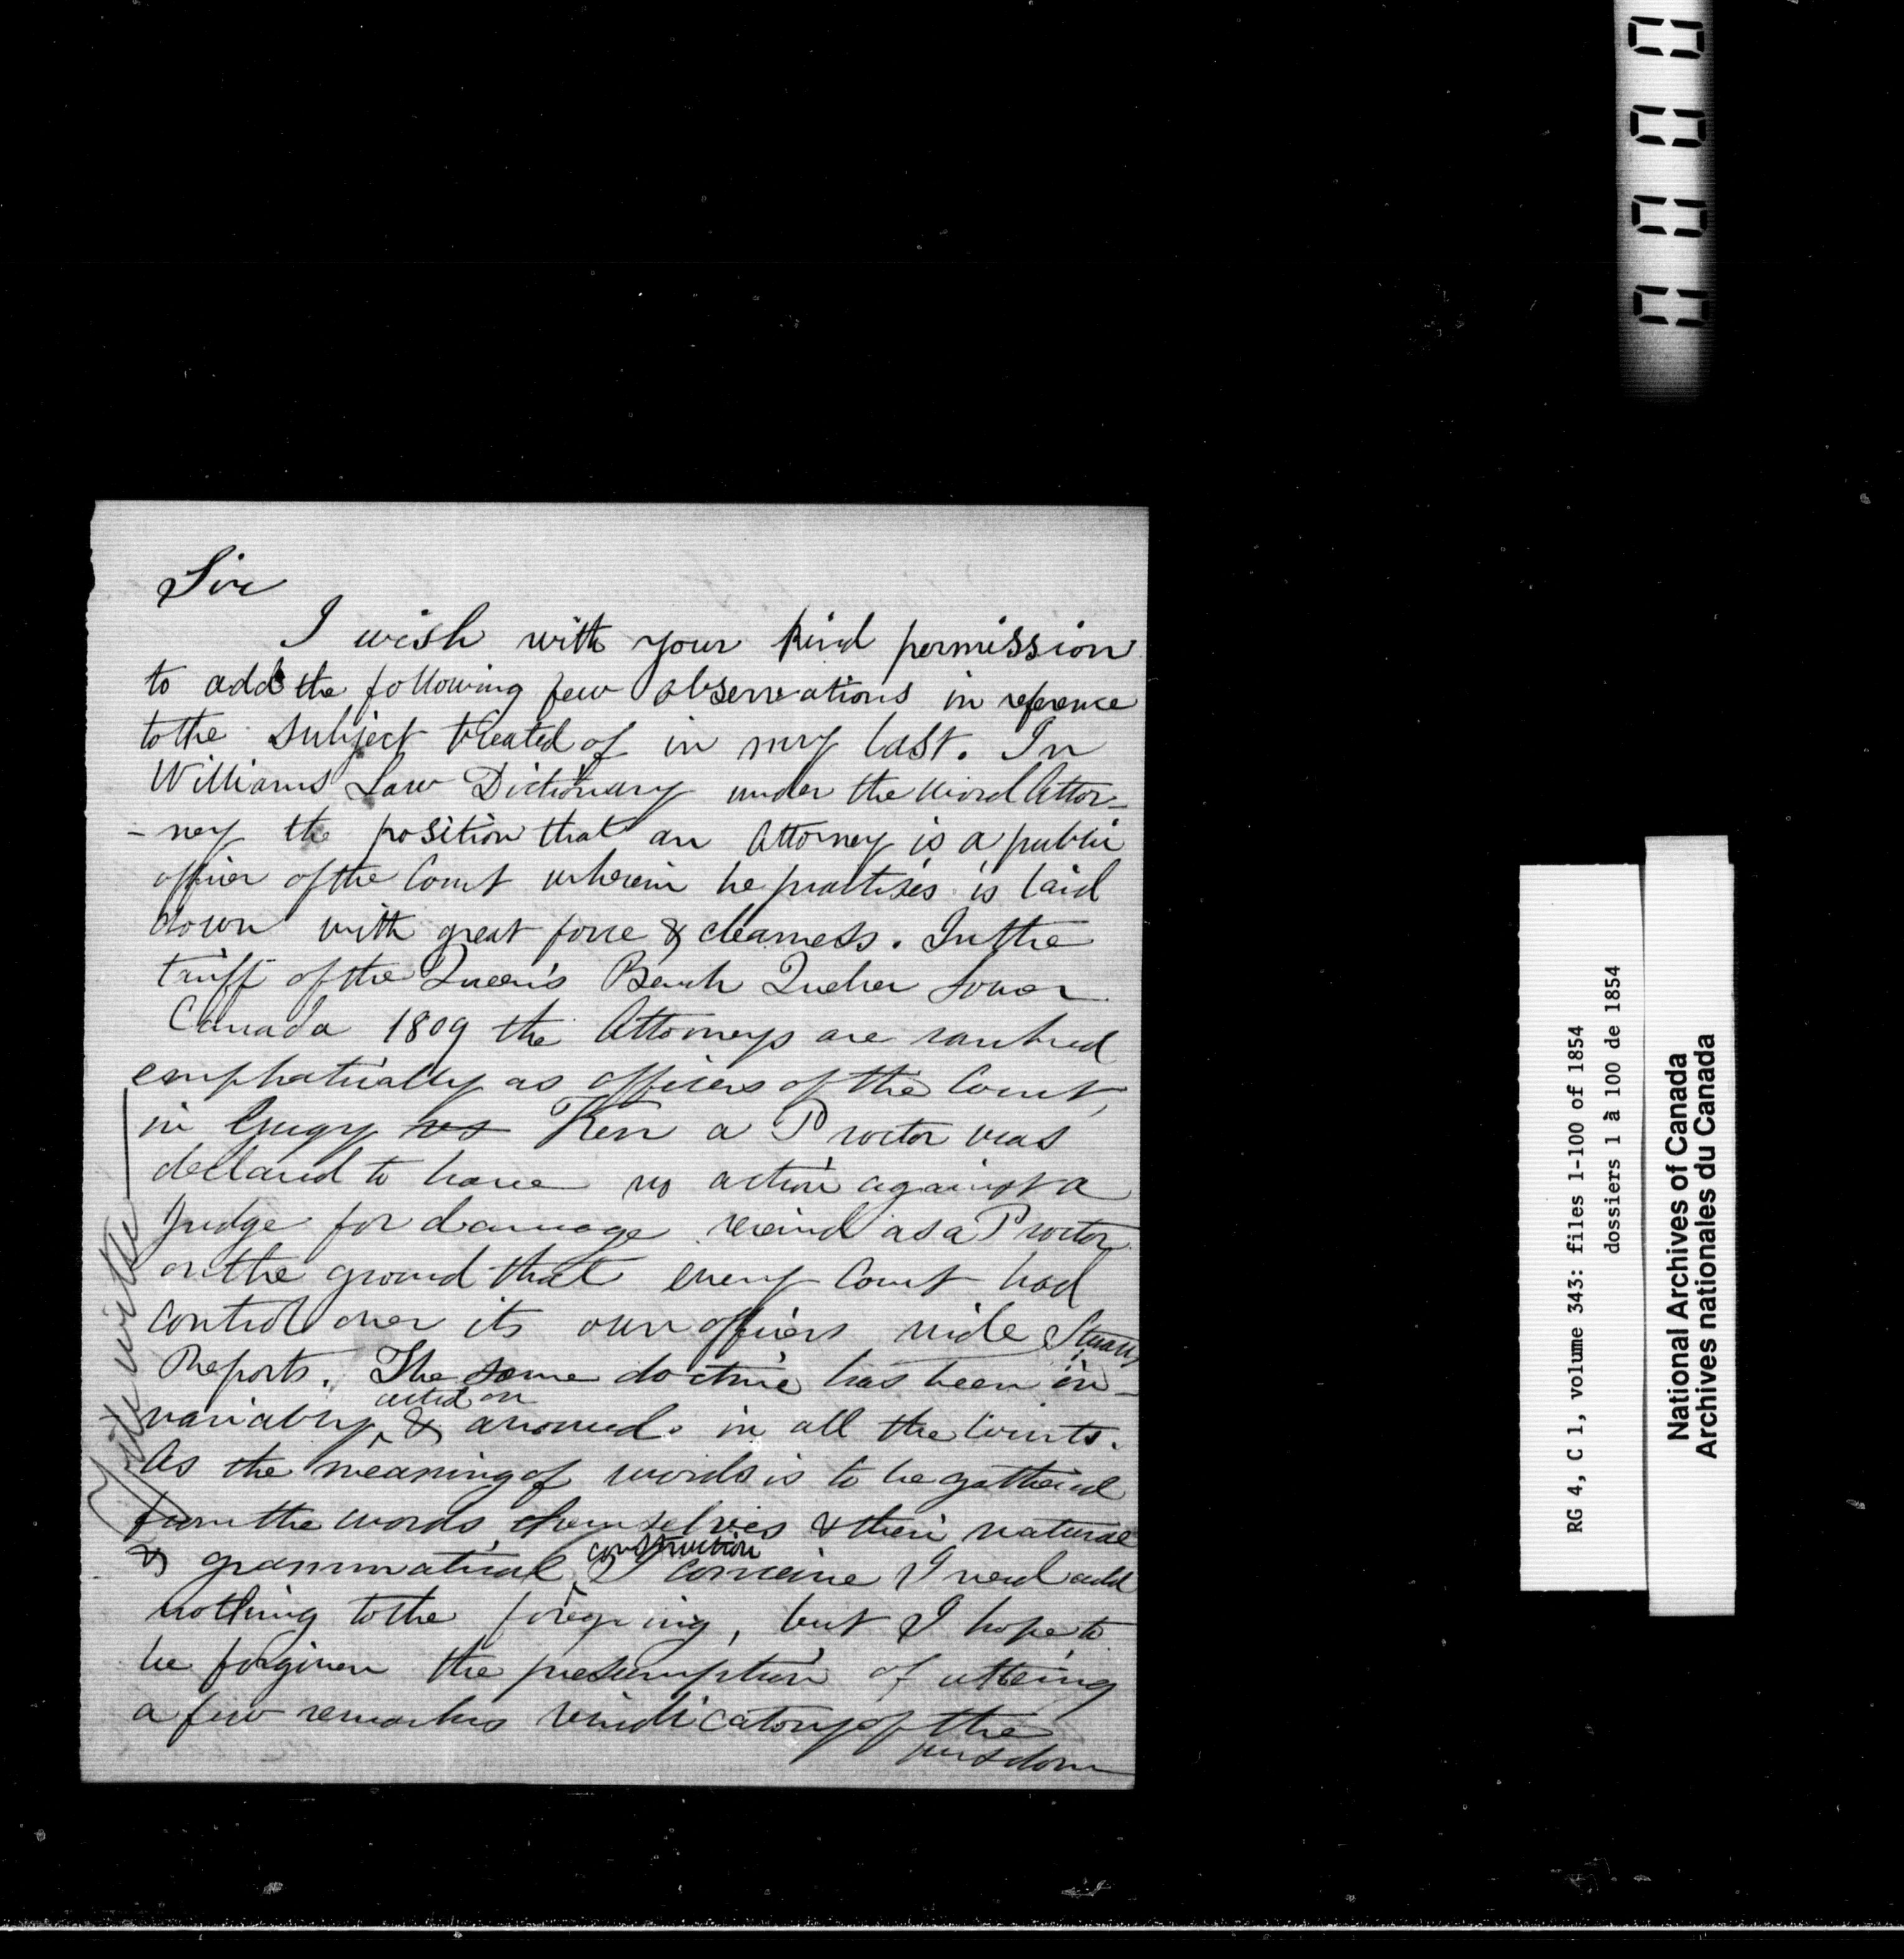 Sir
I wish with your kind permission
to add the following few observations in reference
to the subject treated of in my last. In
Williams Law Dictionary under the word Attor-
-ney the position that an Attorney is a public
officer of the Court wherein he practises is laid
down with great force & clearness. In the
tariff of the Queen's Bench Quebec Lower
Canada 1809 the Attorneys are ranked
emphatically as officers of the Court,
in Gugy vs Kerr a Proctor was
declared to have no action against a
Judge for damage received as a Proctor
on the ground that every Court had
control over its own officers vide Stuarts
Reports. The same doctrine has been in-
-variably acted on & avowed in all the Courts.
As the meaning of words is to be gathered
from the words themselves & their natural
& grammatical construction I conceive I need add
nothing to the foregoing, but I hope to
be forgiven the presumption of uttering
a few remarks vindicatory of the
wisdom
0000
RG 4, C 1, volume 343: files 1-100 of 1854
dossiers 1 à 100 de 1854
National Archives of Canada
Archives nationales du Canada